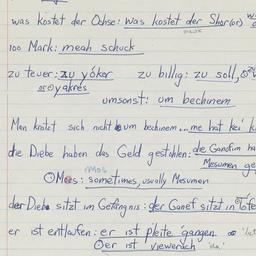 was kostet der Ochse: was kostet der Shor(or)
100 Mark: meah schuck
zu teuer: zu yóker zu billig: zu soll,
oryakres
umsonst: um bechinem
Man kratzt sich nicht um bechinem... me hat kei
die Diebe haben das Geld gestohlen: die Ganofim ha
Mesumen ge
Moos
Moos: sometimes, usually Mesumen
der Dieb sitzt im Gefängnis: der Ganef sitzt in Tofe
er ist entlaufen: er ist pleite gangen
Oer ist viewerach